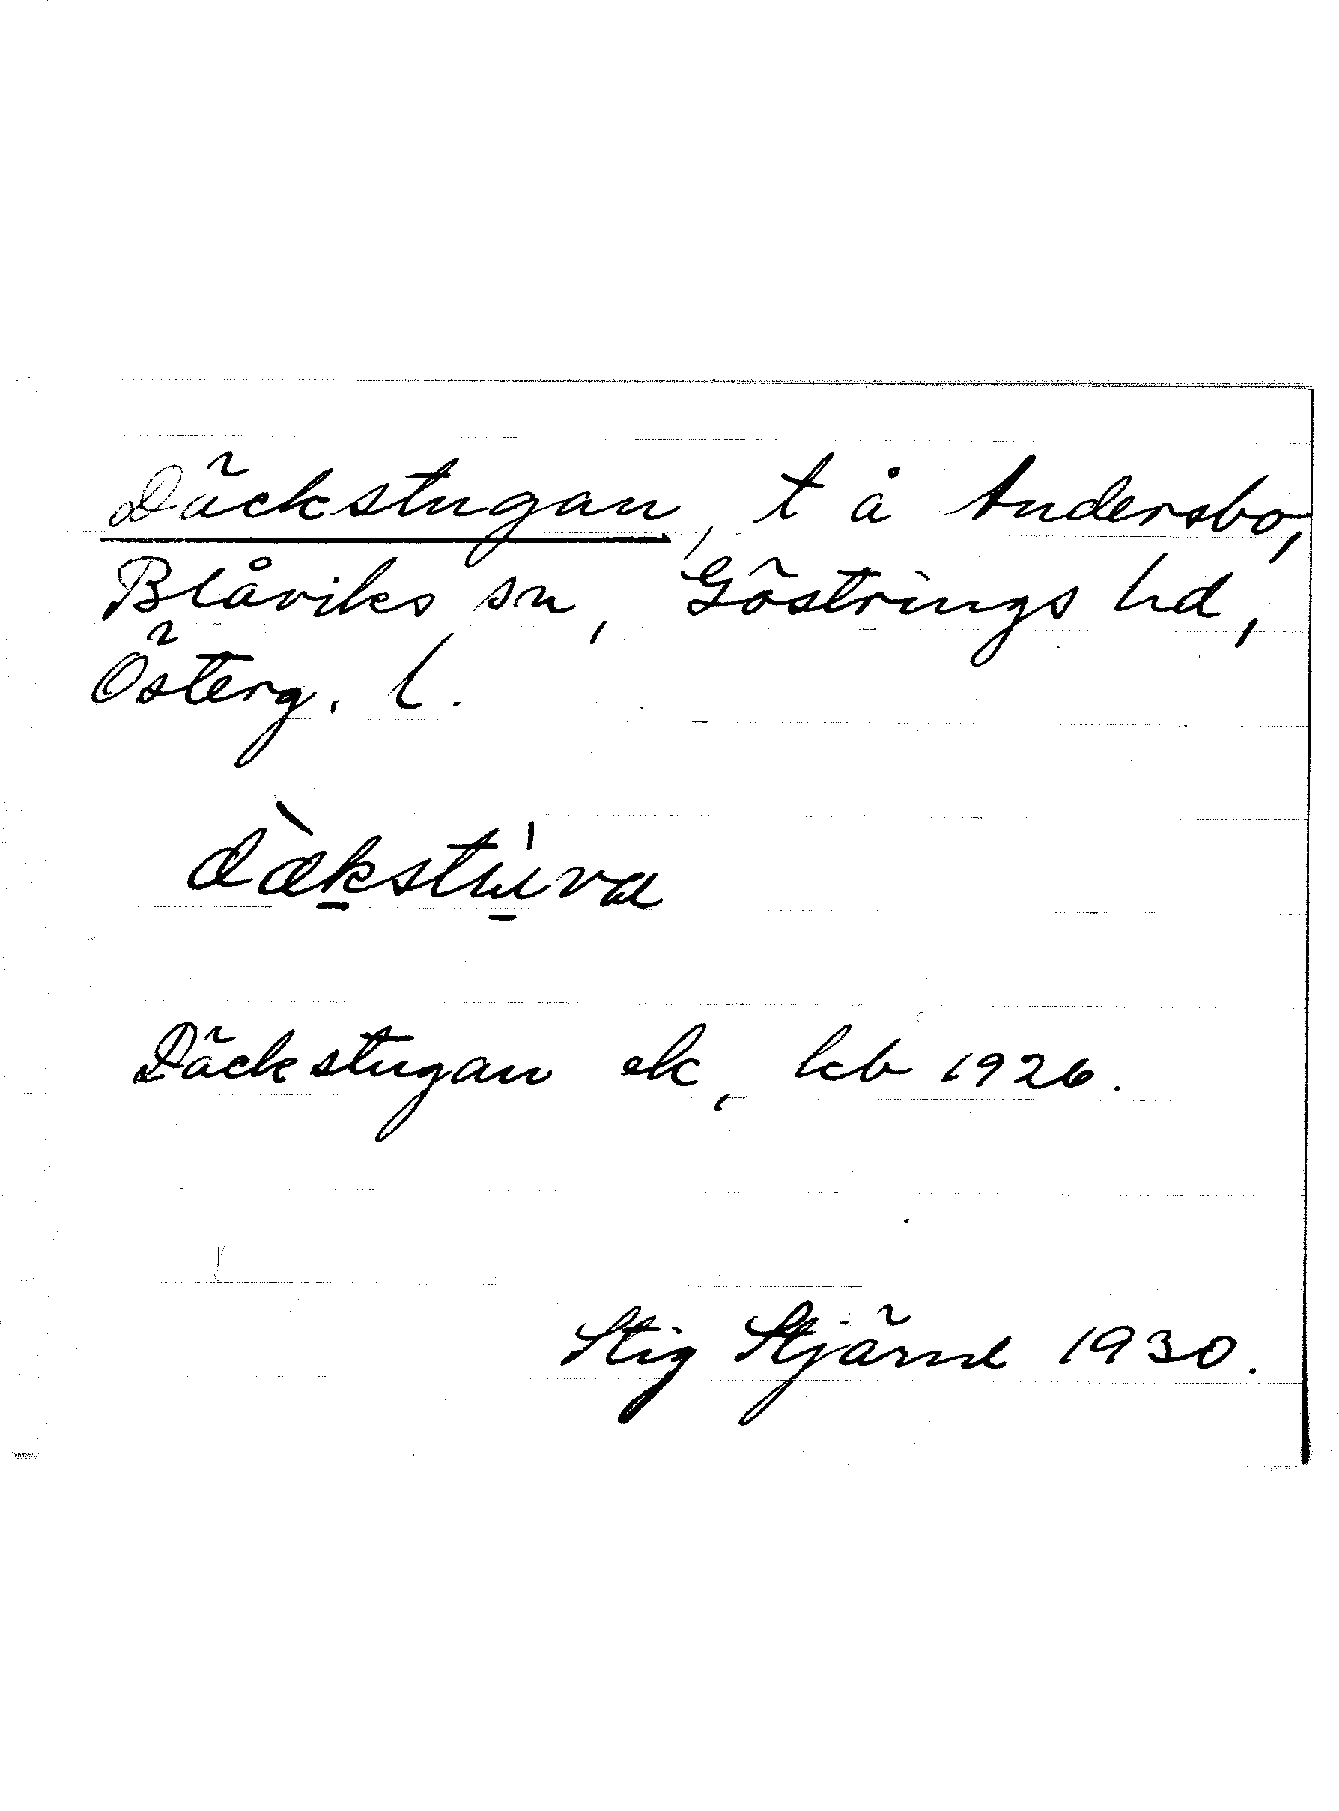 Däckstugan, t å Andersbo,
Blåviks sn, Göstrings hd,
Österg. l.
dæ̀kstu̍va
Däckstugan ek, kb 1926.
Stig Stjärne 1930.